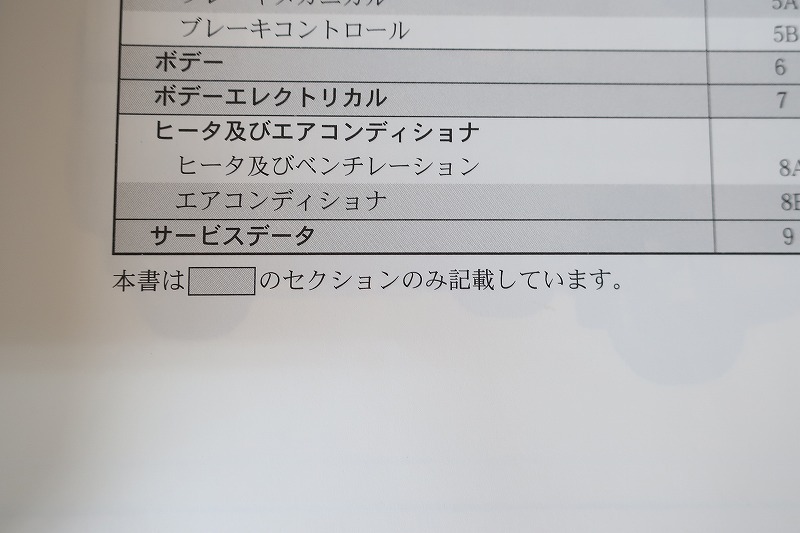 ブレーキメカニカル 5A
ブレーキコントロール 5B
ボデー 6
ボデーエレクトリカル 7
ヒータ及びエアコンディショナ
ヒータ及びベンチレーション 8A
エアコンディショナ 8B
サービスデータ 9
本書は のセクションのみ記載しています。